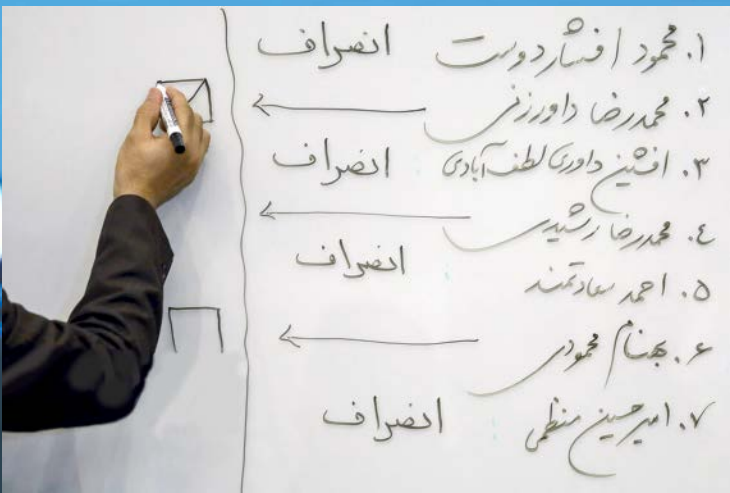 ۱. محمود افشاردوست انصراف
۲. محمدرضا داورزنی
۳. افشین داوری لطف آبادی انصراف
٤. محمدرضا رشیدی
۵. احمد سعادتمند انصراف
۶. بهنام محمودی
۷. امیرحسین منظمی انصراف